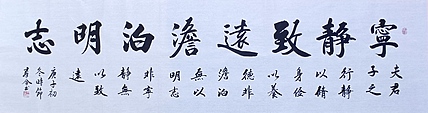 寧靜致遠澹泊明志
夫君子之
行靜以脩
身儉以養
德非澹泊
無以明志
非寧靜無
以致遠
庚子初
冬時節